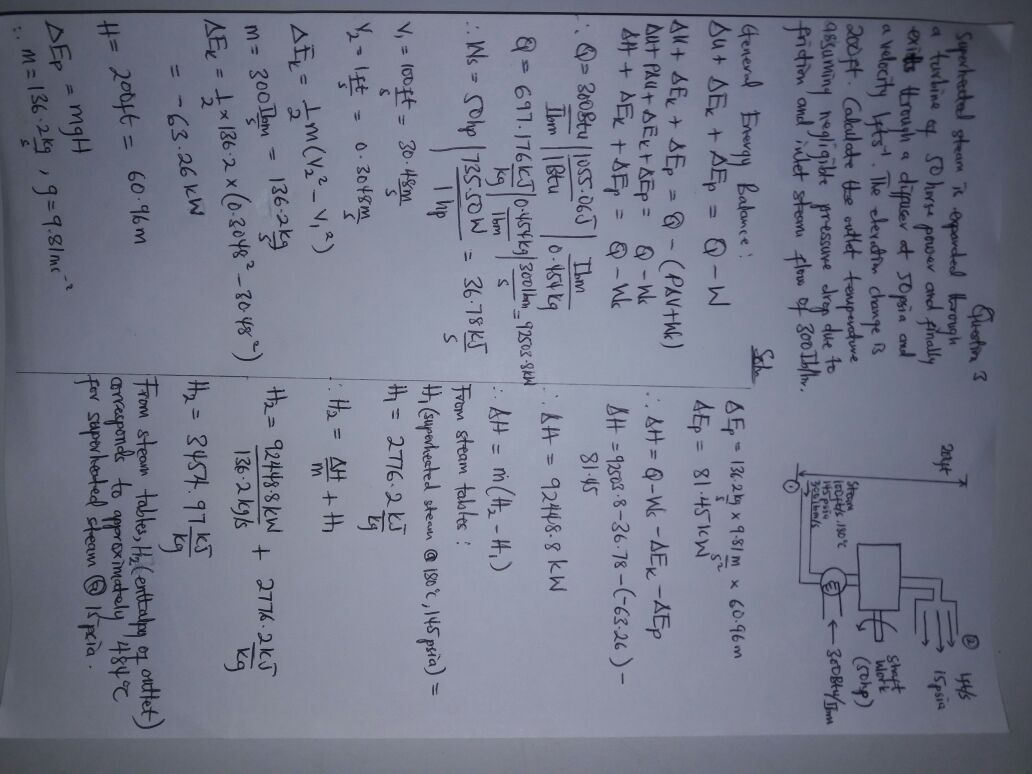 Question 3
Superheated steam is expanded through
a turbine of 50 horse power and finally
exits through a diffuser at 50psia and
a velocity 1fts⁻¹. The elevation change is
200ft. Calculate the outlet temperature
assuming negligible pressure drop due to
friction and inlet steam flow of 300Ib/hr.
200ft
② 1ft/s
15psia
Shaft
Work
(50hp)
← 300Btu/Ibm
Steam
100ft/s, 180°C
145psia
300lbm/s
①
Soln
General Energy Balance:
ΔU + ΔEk + ΔEp = Q - W
ΔU + ΔEk + ΔEp = Q - (PΔV + Ws)
ΔU + PΔU + ΔEk + ΔEp = Q - Ws
ΔH + ΔEk + ΔEp = Q - Ws
∴ Q = 300Btu/Ibm | 1055.06J/1Btu | Ibm/0.454kg
Q = 697.176 kJ/kg | 0.454kg/1bm | 300lbm/s = 92503.8kW
∴ Ws = 50hp | 735.50W/1hp = 36.78 kJ/s
V₁ = 100ft/s = 30.48m/s
V₂ = 1ft/s = 0.3048m/s
ΔEk = 1/2 m(V₂² - V₁²)
m = 300Ibm/s = 136.2kg/s
ΔEk = 1/2 × 136.2 × (0.3048² - 30.48²)
= -63.26kW
H = 200ft = 60.96m
ΔEp = mgH
∴ m = 136.2kg/s, g = 9.81ms⁻²
ΔEp = 136.2kg/s × 9.81m/s² × 60.96m
ΔEp = 81.45kW
∴ ΔH = Q - Ws - ΔEk - ΔEp
ΔH = 92503.8 - 36.78 - (-63.26) -
81.45
∴ ΔH = 92448.8kW
∴ ΔH = ṁ(H₂ - H₁)
From steam tables:
H₁ (superheated steam @ 180°C, 145psia) =
H₁ = 2776.2 kJ/kg
∴ H₂ = ΔH/m + H₁
H₂ = 92448.8kW/136.2kg/s + 2776.2kJ/kg
H₂ = 3454.97 kJ/kg
From steam tables, H₂ (enthalpy of outlet)
corresponds to approximately 484°C
for superheated steam @ 15psia.